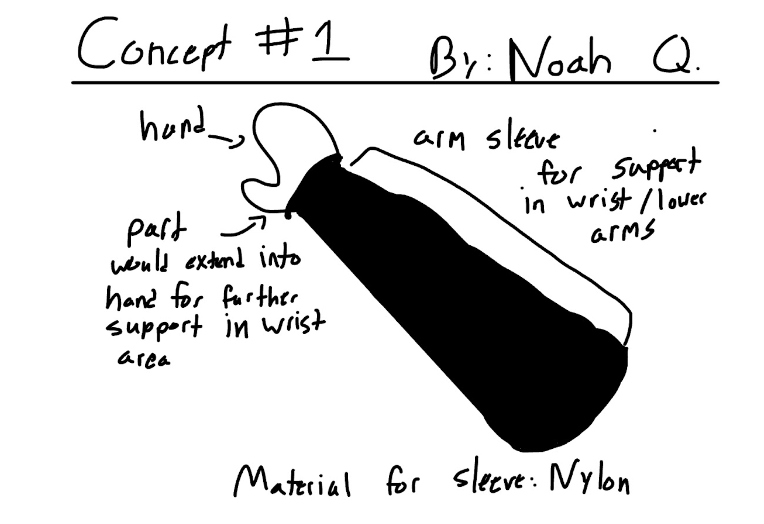 Concept #1 By: Noah Q.
hand
arm sleeve
for support
in wrist/lower
arms
part
would extend into
hand for further
support in wrist
area
Material for sleeve: Nylon